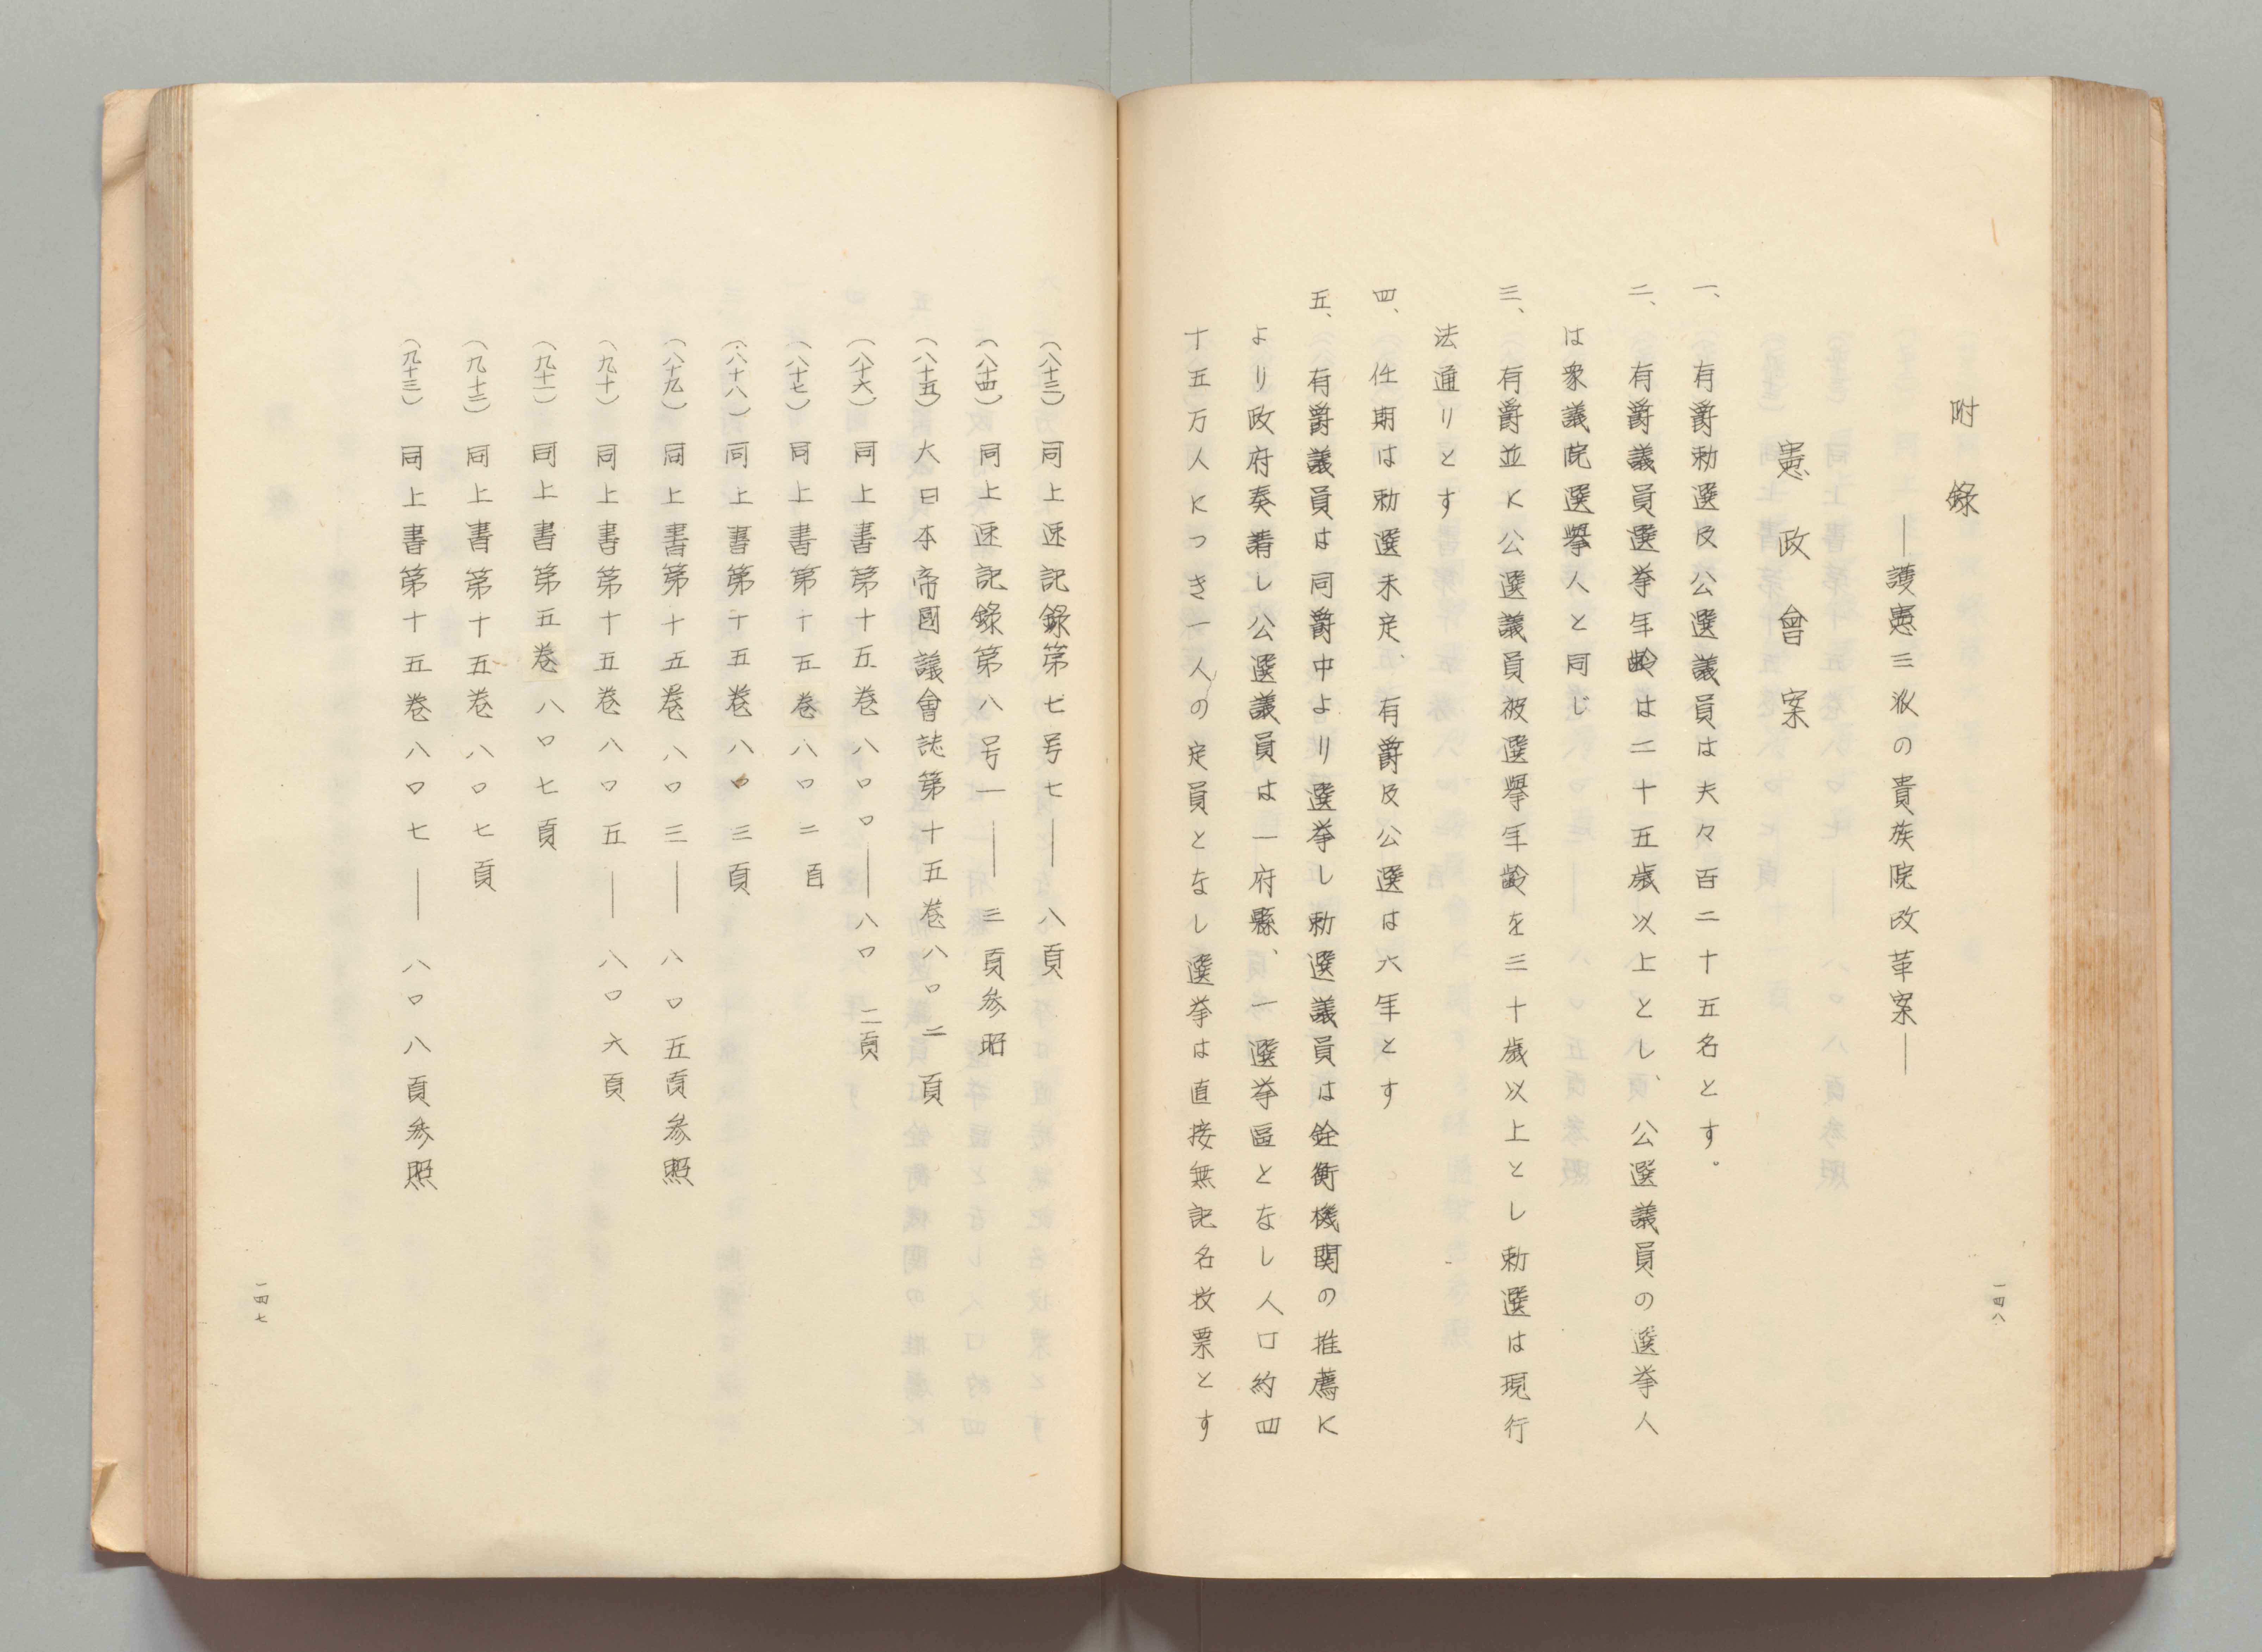 附録
―護憲三派の貴族院改革案―
憲政會案
一、有爵勅選及公選議員は夫々百二十五名とす。
二、有爵議員選挙年齢は二十五歳以上とし、公選議員の選挙人
は衆議院選擧人と同じ
三、有爵並に公選議員被選擧年齢を三十歳以上とし勅選は現行
法通りとす
四、任期は勅選未定、有爵及公選は六年とす
五、有爵議員は同爵中より選挙し勅選議員は銓衡機関の推薦に
より政府奏請し公選議員は一府縣、一選挙區となし人口約四
十五万人につき一人の定員となし選挙は直接無記名投票とす
一四八
(八十三)同上速記録第七号七――八頁
(八十四)同上速記録第八号一――三頁参照
(八十五)大日本帝國議會誌第十五巻八〇二頁
(八十六)同上書第十五巻八〇〇――八〇二頁
(八十七)同上書第十五巻八〇二頁
(八十八)同上書第十五巻八〇三頁
(八十九)同上書第十五巻八〇三――八〇五頁参照
(九十)同上書第十五巻八〇五――八〇六頁
(九十一)同上書第五巻八〇七頁
(九十二)同上書第十五巻八〇七頁
(九十三)同上書第十五巻八〇七――八〇八頁参照
一四七